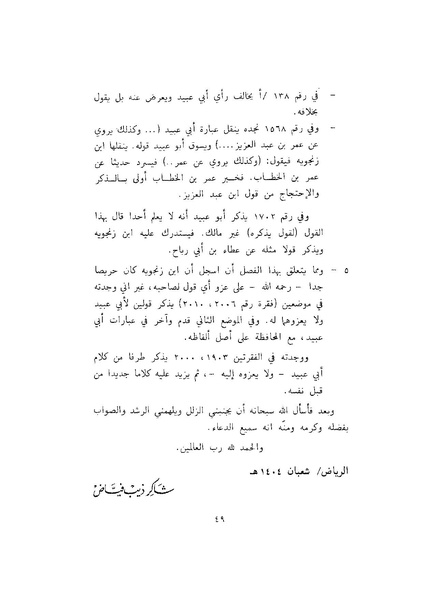 - في رقم ١٣٨ /أ يخالف رأي أبي عبيد ويعرض عنه بل يقول
بخلافه.
- وفي رقم ١٥٦٨ نجده ينقل عبارة أبي عبيد (... وكذلك يروي
عن عمر بن عبد العزيز....) ويسوق أبو عبيد قوله. ينقلها ابن
زنجويه فيقول: (وكذلك يروي عن عمر..) فيسرد حديثا عن
عمر بن الخطــاب. فخــبر عمر بن الخطــاب أولى بــالــذكر
والإحتجاج من قول ابن عبد العزيز.
وفي رقم ١٧٠٢ يذكر أبو عبيد أنه لا يعلم أحدا قال بهذا
القول (لقول يذكره) غير مالك. فيستدرك عليه ابن زنجويه
ويذكر قولا مثله عن عطاء بن أبي رباح.
٥ - ومما يتعلق بهذا الفصل أن اسجل أن ابن زنجويه كان حريصا
جدا - رحمه الله - على عزو أي قول لصاحبه، غير اني وجدته
في موضعين (فقرة رقم ٢٠٠٦، ٢٠١٠) يذكر قولين لأبي عبيد
ولا يعزوهما له. وفي الموضع الثاني قدم وآخر في عبارات أبي
عبيد، مع المحافظة على أصل ألفاظه.
ووجدته في الفقرتين ١٩٠٣، ٢٠٠٠ يذكر طرفا من كلام
أبي عبيد - ولا يعزوه إليه -، ثم يزيد عليه كلاما جديدا من
قبل نفسه.
وبعد فأسأل الله سبحانه أن يجنبني الزلل ويلهمني الرشد والصواب
بفضله وكرمه ومنّه انه سميع الدعاء.
والحمد لله رب العالمين.
الرياض/ شعبان ١٤٠٤ هـ
شاكر ذيب فياض
٤٩